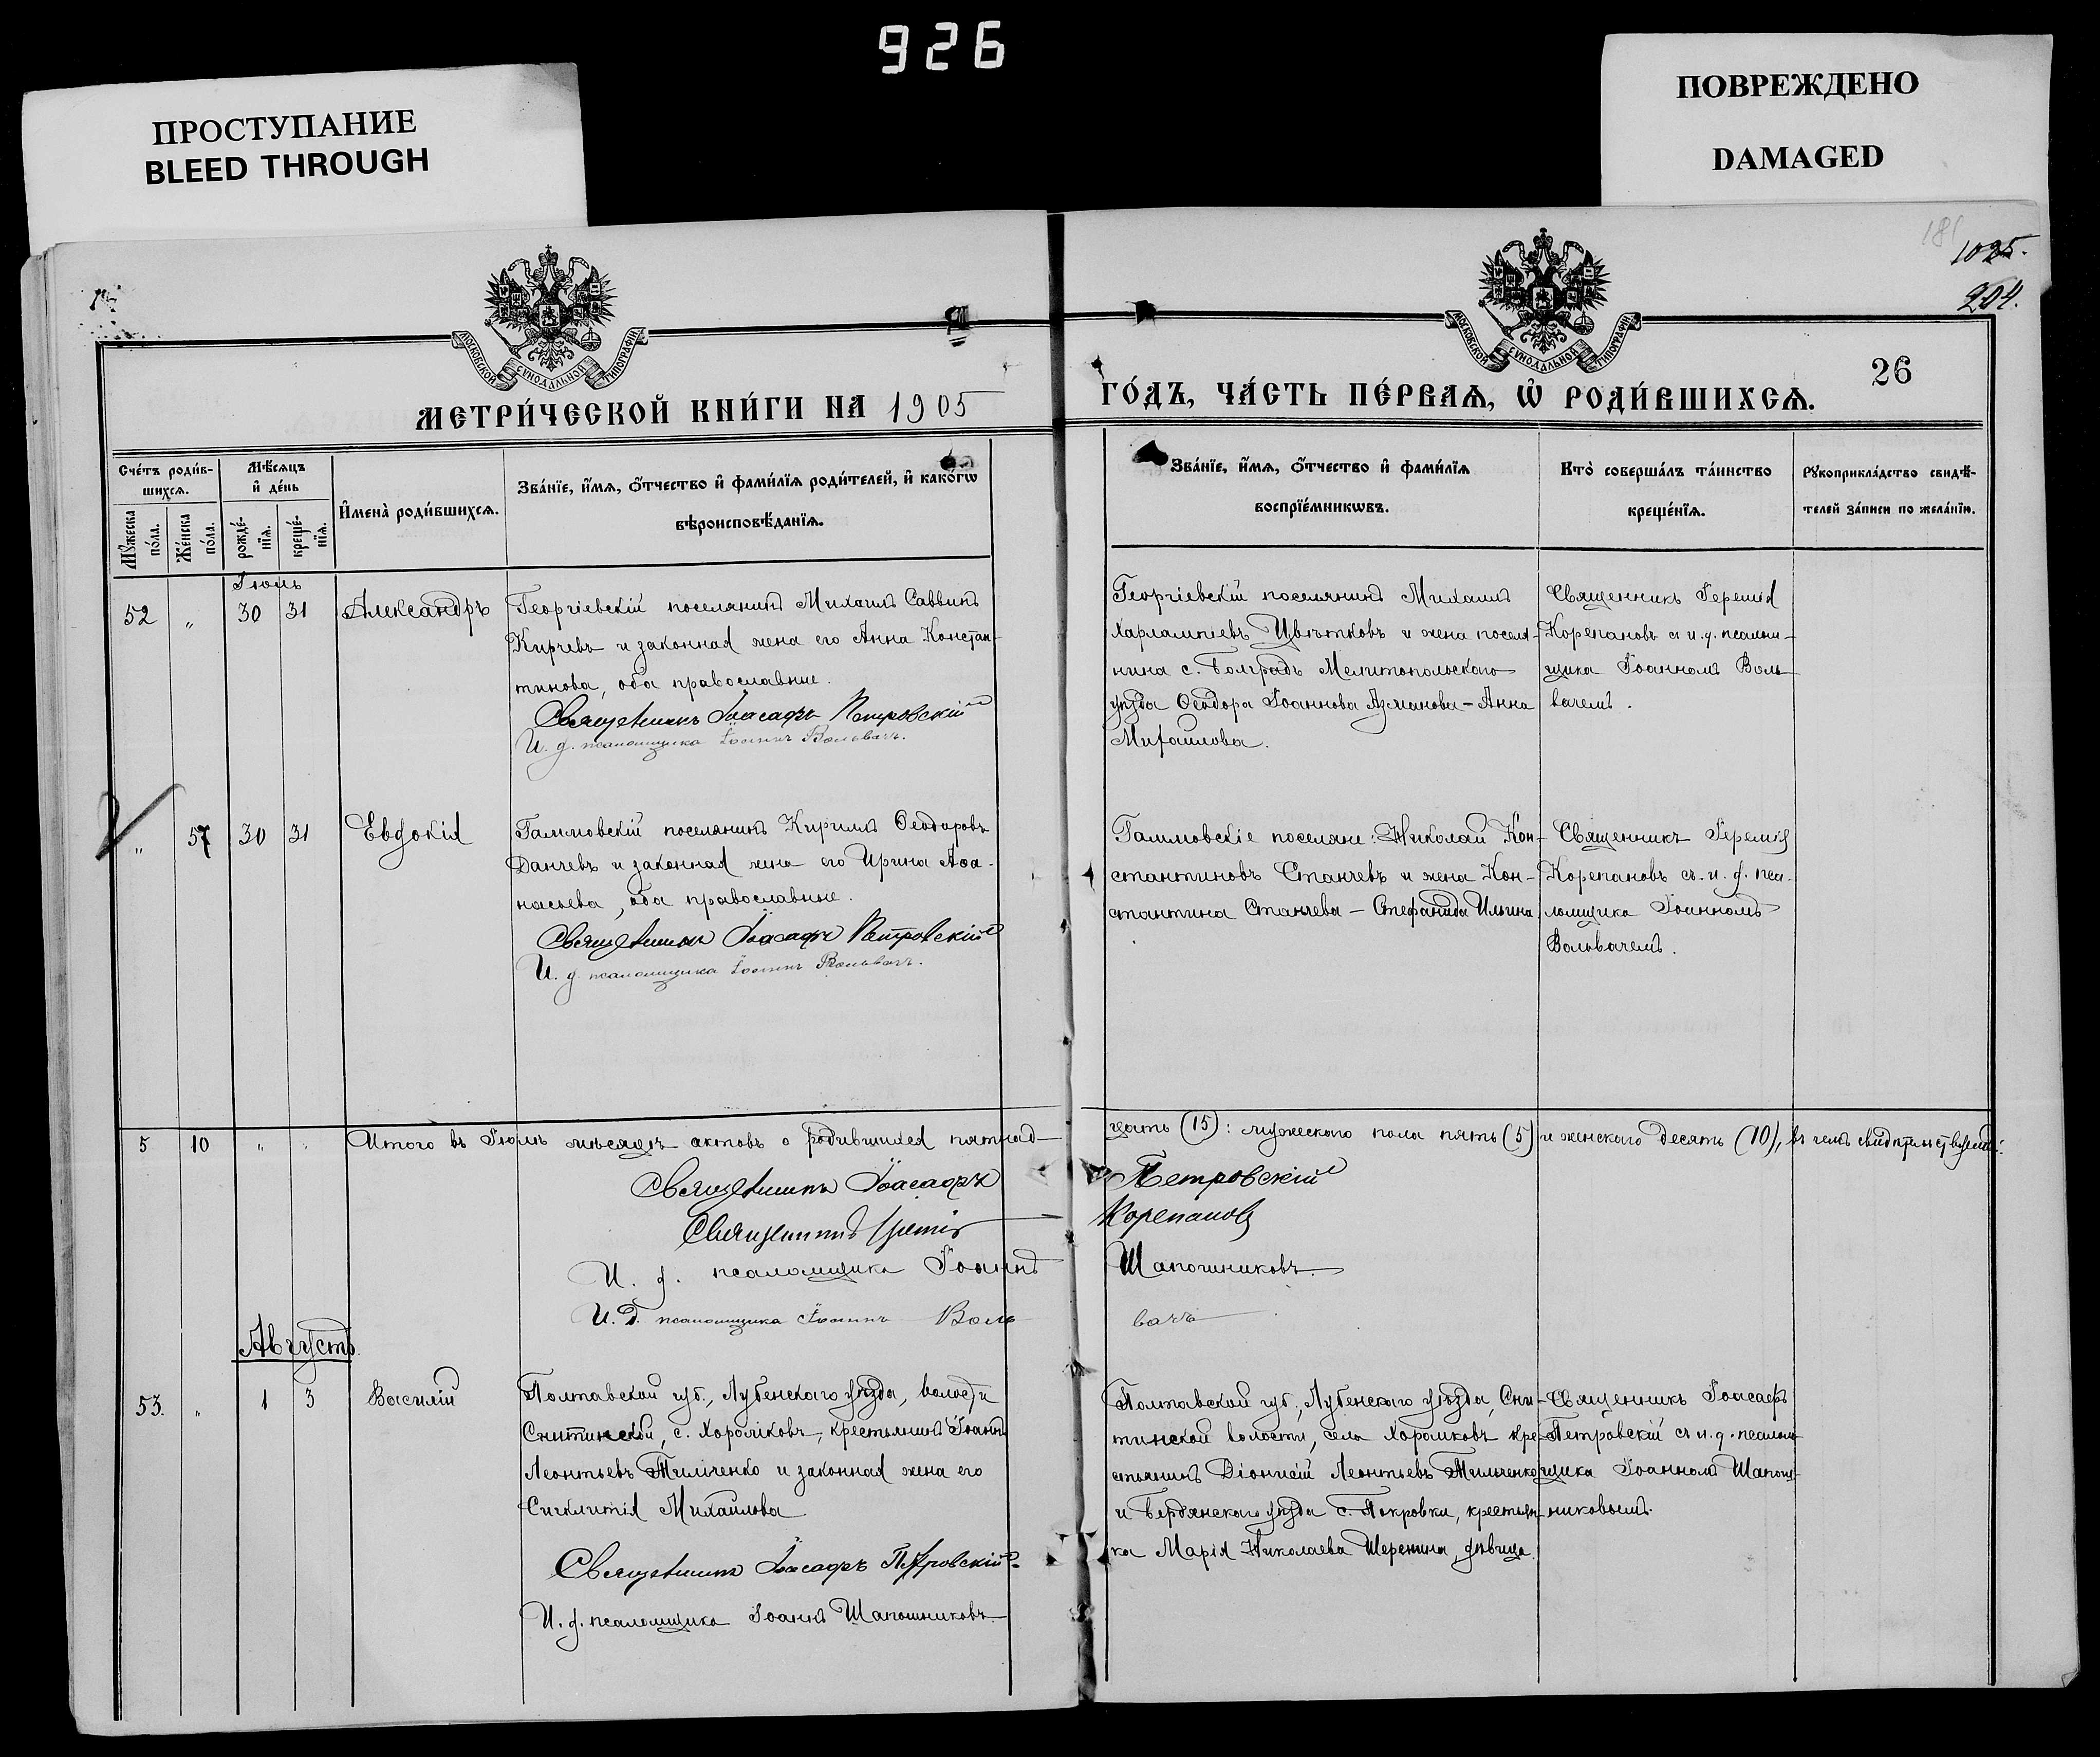 926
ПРОСТУПАНИЕ
BLEED THROUGH
ПОВРЕЖДЕНО
DAMAGED
181
1025.
204.
МОСКОВСКОЙ СѴНОДАЛЬНОЙ ТИПОГРАФІИ
МОСКОВСКОЙ СѴНОДАЛЬНОЙ ТИПОГРАФІИ
26
МЕТРИ́ЧЕСКОЙ КНИ́ГИ НА 1905 ГО́ДЪ, ЧА́СТЬ ПЕ́РВАѦ, Ѡ҆ РОДИ́ВШИХСѦ.
Сче́тъ роди́в-
шихсѧ.
Мꙋ́жеска
по́ла.
Же́нска
по́ла.
Мѣ́сѧцъ
и҆ де́нь
рожде́-
нїѧ.
креще́-
нїѧ.
И҆мена̀ роди́вшихсѧ.
Зва́нїе, и҆́мѧ, ѻ҆́тчество и҆ фами́лїѧ роди́телей, и҆ како́гѡ
вѣроисповѣ́данїѧ.
Зва́нїе, и҆́мѧ, ѻ҆́тчество и҆ фами́лїѧ
воспрїе́мникѡвъ.
Кто̀ соверша́лъ та́инство
креще́нїѧ.
Рꙋкоприкла́дство свидѣ́-
телей за́писи по жела́нїю.
Іюль
52 „ 30 31 Александръ
Георгіевскій поселянинъ Михаилъ Саввинъ
Кирчевъ и законная жена его Анна Констан-
тинова, оба православные.
Священникъ Іоасафъ Петровскій
И. д. псаломщика Іоаннъ Вольвачъ.
Георгіевскій поселянинъ Михаилъ
Харлампіевъ Цвѣтковъ и жена поселя-
нина с. Болградъ Мелитопольскаго
уѣзда Ѳеодора Іоаннова Азманова - Анна
Михаилова.
Священникъ Іеремія
Корепановъ съ и. д. псалом-
щика Іоанномъ Воль-
вачемъ.
„ 57 30 31 Евдокія
Гаммовскій поселянинъ Кириллъ Ѳеодоровъ
Данчевъ и законная жена его Ирина Аѳа-
насьева, оба православные.
Священникъ Іоасафъ Петровскій
И. д. псаломщика Іоаннъ Вольвачъ.
Гаммовскіе поселяне: Николай Кон-
стантиновъ Станчевъ и жена Кон-
стантина Станчева - Стефанида Ильина
Священникъ Іеремія
Корепановъ съ. и. д. пса-
ломщика Іоанномъ
Вольвачемъ.
5 10 „ „ Итого въ Іюлѣ мѣсяцѣ актовъ о родившихся пятнад-
цать (15): мужескаго пола пять (5) и женскаго десять (10), въ чемъ свидѣтельствуемъ:
Священникъ Іоасафъ Петровскій
Священникъ Іеремія Корепановъ
И. д. псаломщика Іоаннъ Шапошниковъ.
И. д. псаломщика Іоаннъ Воль вачъ
Августъ.
53. „ 1 3 Василій
Полтавской губ., Лубенскаго уѣзда, волости
Снитинской, с. Хороліковъ, крестьянинъ Іоаннъ
Леонтьевъ Тимченко и законная жена его
Сигклитія Михаилова
Священникъ Іоасафъ Петровскій
И. д. псаломщика Іоаннъ Шапошниковъ.
Полтавской губ., Лубенскаго уѣзда, Сни-
тинской волости, села Хороликовъ кре-
стьянинъ Діонисій Леонтьевъ Тимченко
и Бердянскаго уѣзда с. Покровки, крестьян-
ка Марія Николаева Шеренина, дѣвица.
Священникъ Іоасафъ
Петровскій съ и. д. псалом-
щика Іоанномъ Шапош-
никовымъ.